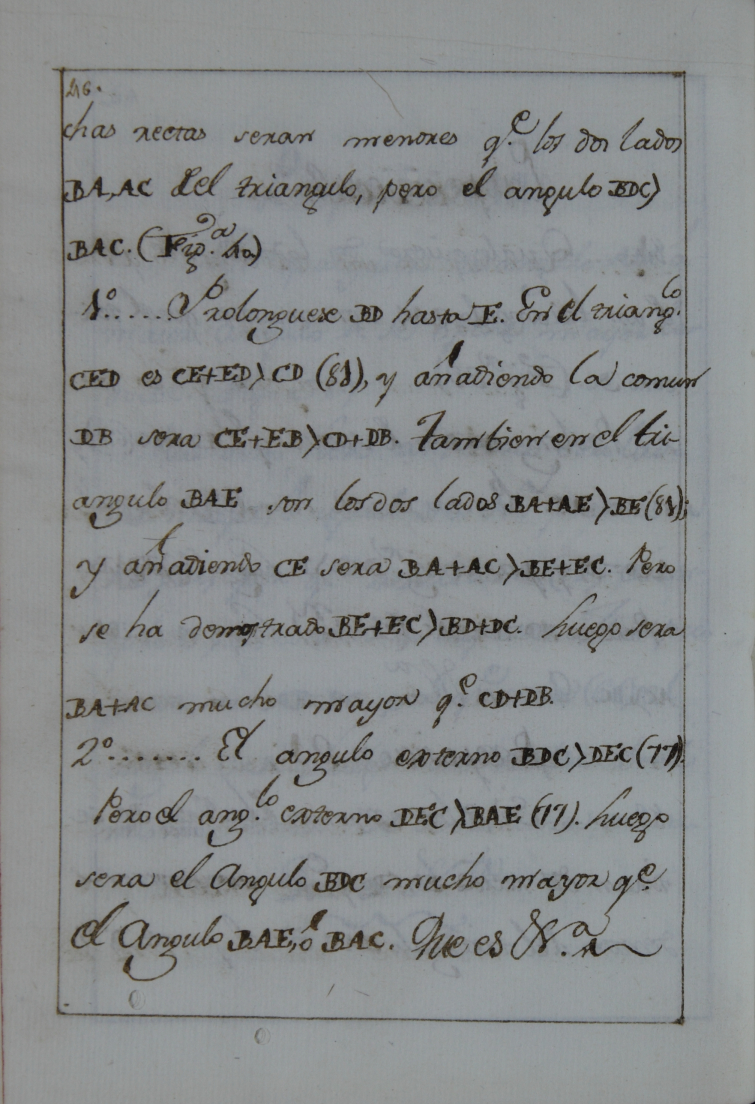 46.
chas rectas seran menores q.e los dos lados
BA, AC del triangulo, pero el angulo BDC>
BAC. (Fig.a 40)
1.o..... Prolonguese BD hasta E. En el triang.lo
CED es CE+ED>CD (81), y añadiendo la comun
DB sera CE+EB>CD+DB. Tambien en el tri-
angulo BAE son los dos lados BA+AE>BE (81);
y añadiendo CE sera BA+AC>BE+EC. Pero
se ha demostrado BE+EC>BD+DC. Luego sera
BA+AC mucho mayor q.e CD+DB.
2.o....... El angulo externo BDC>DEC (77).
Pero el ang.lo externo DEC>BAE (77). Luego
sera el Angulo BDC mucho mayor q.e
el Angulo BAE, ó BAC. Que es